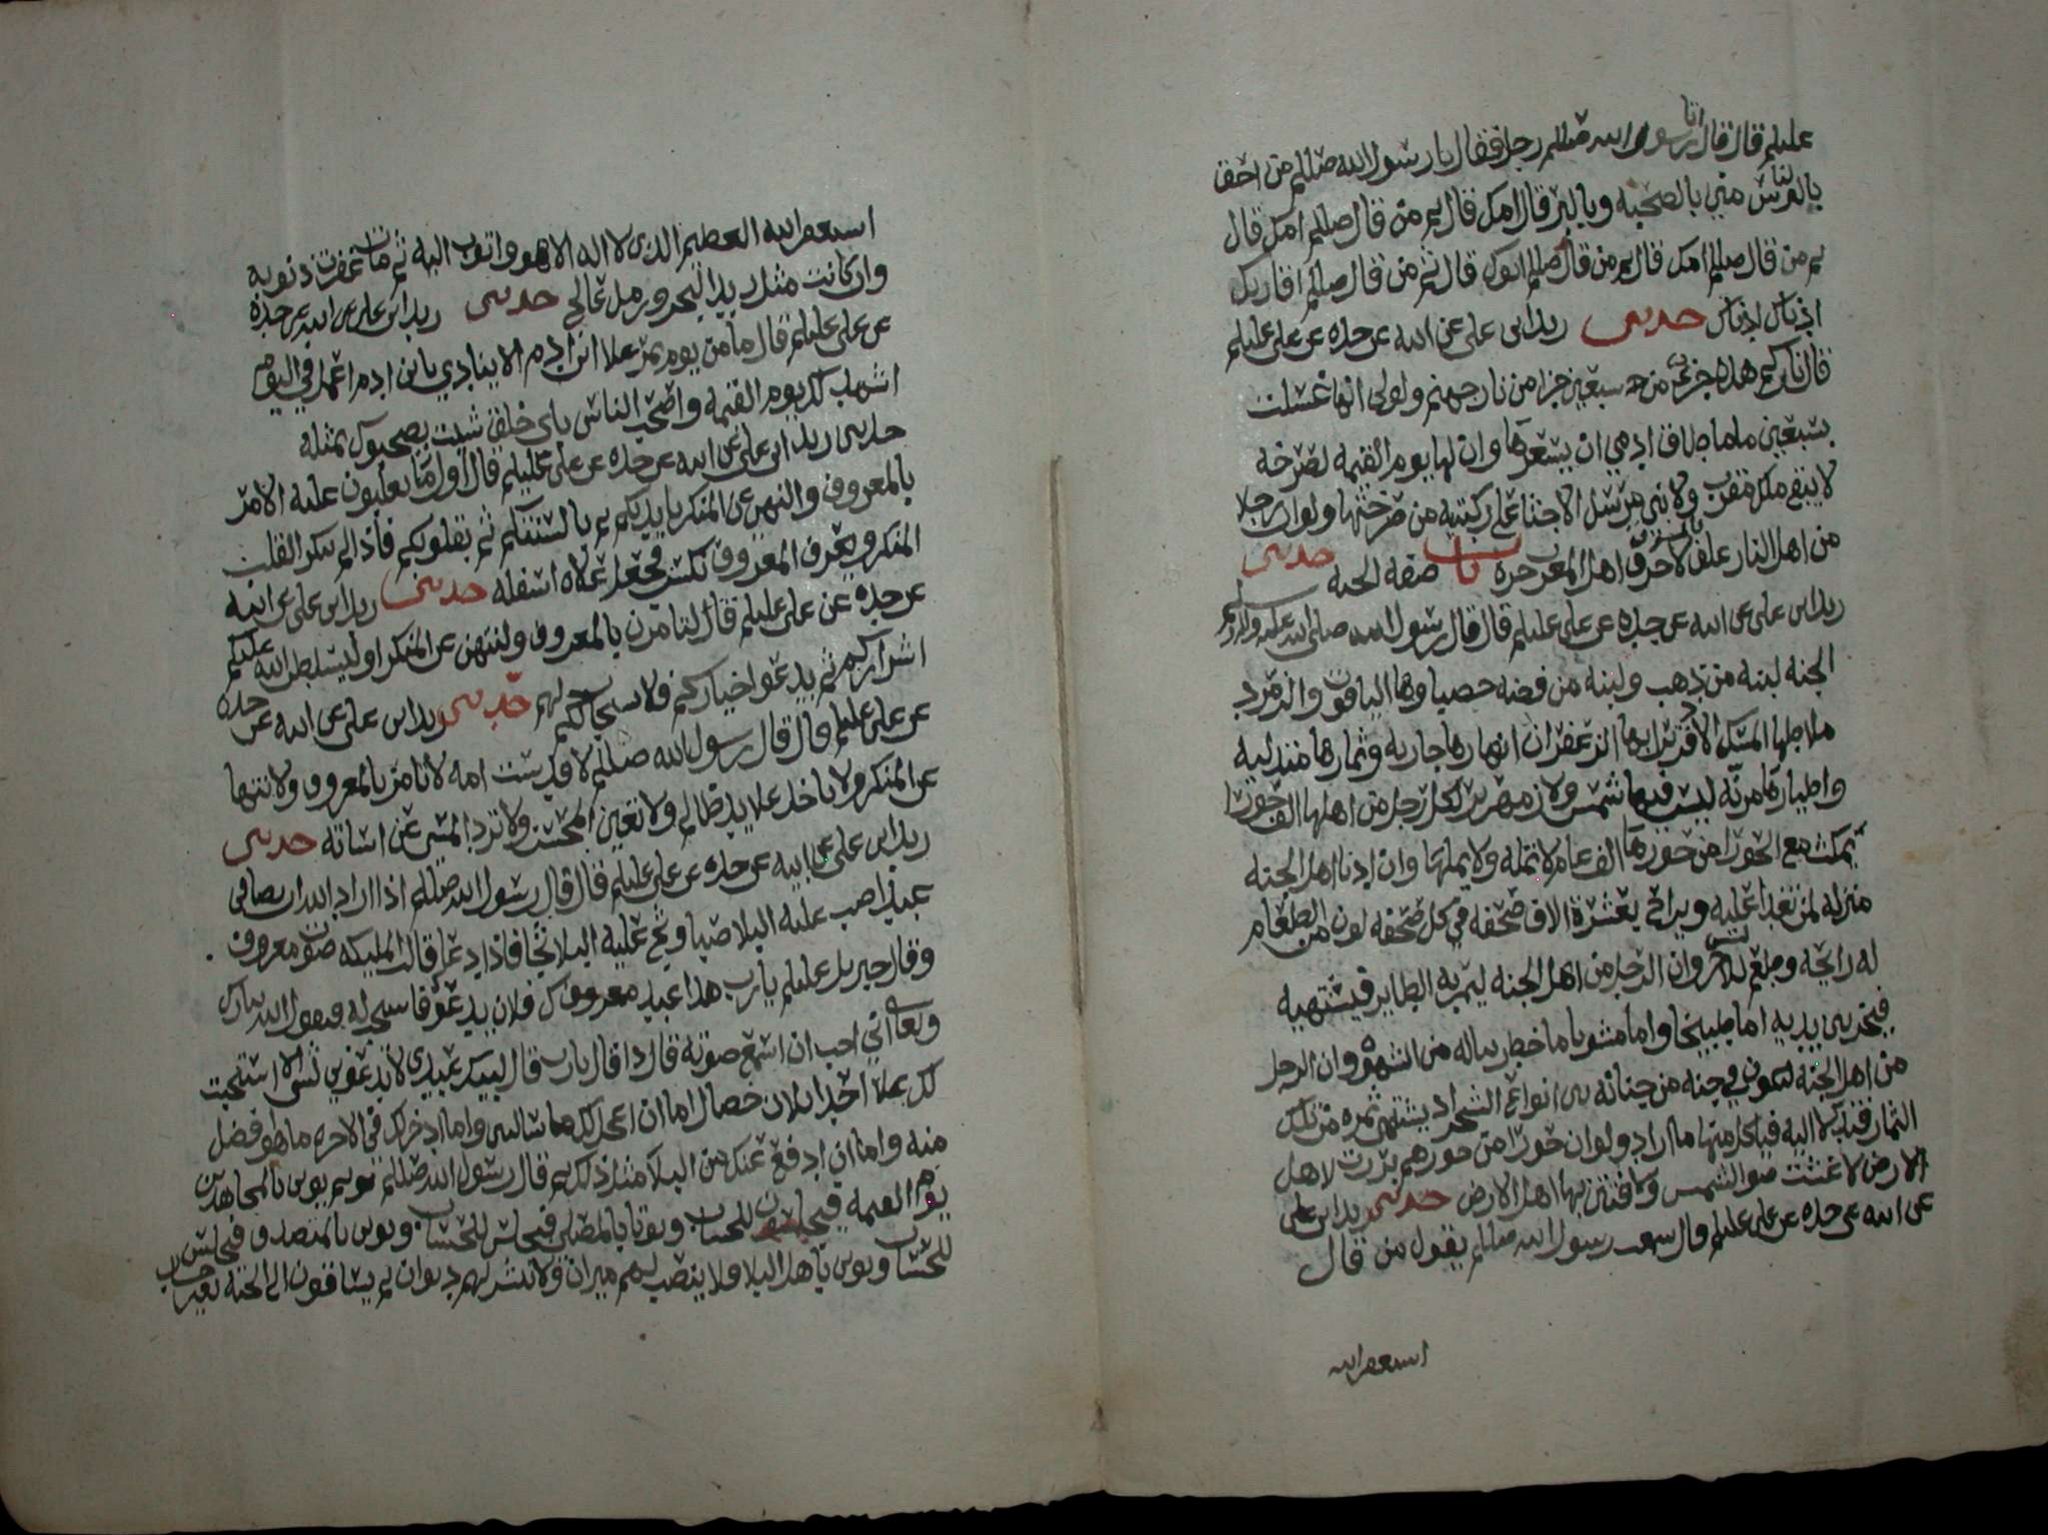 عليلم قال قال اتا رسول الله صللم رجل فقال يا رسول الله صللم من احق
بالناس مني بالصحبه وبالبر قال امك قال ثم من قال صللم امك قال
ثم من قال صللم امك قال ثم من قال صللم ابوك قال ثم من قال صللم اقاربك
ادناك ادناك حدثني زيد ابن علي عن ابيه عن جده عن علي عليلم
قال ناركم هذه جزء من سبعين جزا من نار جهنم ولولى انها غسلت
بسبعين ماما طاق ادمي ان يسعرها وان لها يوم القيمه لصرخه
لا يبقى ملك مقرب ولا نبي مرسل الا جثا على ركبتيه من صرختها ولو ان رجلا
من اهل النار علق بالمشرق لاحرق اهل المغرب حره باب صفه الجنه حدثني
زيد ابن علي عن ابيه عن جده عن علي عليلم قال قال رسول الله صلى الله عليه واله وسلم
الجنه لبنه من ذهب ولبنه من فضه حصباوها الياقوت والزمرد
ملاطها المسك الاذفر ترابها الزعفران انهارها جاريه وثمارها متدليه
واطيارها مرنه ليس فيها شمس ولا زمهرير لكل رجل من اهلها الف حورا
يمكث مع الحورا من حورها الف عام لا تمله ولا يملها وان ادنا اهل الجنه
منزله لمن يغدا عليه ويراح بعشرة الاف صحفه في كل صحفه لون من الطعام
له رايحه وطعم ليس للاخر وان الرجل من اهل الجنه ليمر به الطاير فيشتهيه
فيخر بين يديه اما طبيخا واما مشويا ما خطر بباله من الشهوة وان الرجل
من اهل الجنه ليكون في جنه من جناته بين انواع الشجر اذ يشتهي ثمره من تلك
الثمار فتدلا اليه فياكل منها ما اراد ولو ان حورا من حورهم برزت لاهل
الارض لاغشت ضو الشمس ولافتتن بها اهل الارض حدثني زيد ابن علي
عن ابيه عن جده عن علي عليلم قال سمعت رسول الله صللم يقول من قال
استغفر الله
استغفر الله العظيم الذي لا اله الا هو واتوب اليه ثم مات غفرت ذنوبه
وان كانت مثل زبد البحر ورمل عالج حدثني زيد ابن علي عن ابيه عن جده
عن علي عليلم قال ما من يوم يمر علا ابن ادم الا ينادي يا بن ادم اعمل في اليوم
اشهد لك يوم القيمه واصحب الناس باي خلق شيت يصحبوك بمثله
حدثني زيد ابن علي عن ابيه عن جده عن علي عليلم قال اول ما تغلبون عليه الامر
بالمعروف والنهي عن المنكر بايديكم ثم بالسنتكم ثم بقلوبكم فاذا لم ينكر القلب
المنكر ويعرف المعروف نكس فجعل اعلاه اسفله حدثني زيد ابن علي عن ابيه
عن جده عن علي عليلم قال لتامرن بالمعروف ولتنهن عن المنكر او ليسلطن الله عليكم
اشراركم ثم يدعوا خياركم فلا يستجاب لهم حدثني زيد ابن علي عن ابيه عن جده
عن علي عليلم قال قال رسول الله صللم لا قدست امه لا تامر بالمعروف ولا تنتها
عن المنكر ولا تاخذ علا يد ظالم ولا تعين المحسن ولا ترد المسي عن اساته حدثني
زيد ابن علي عن ابيه عن جده عن علي عليلم قال قال رسول الله صللم اذا اراد الله ان يصافي
عبدا صب عليه البلا صبا وثج عليه البلا ثجا فاذا دعا قالت المليكه صوت معروف
وقال جبريل عليلم يا رب هذا عبدك فلان يدعوك فاستجب له فيقول الله تبارك
وتعالى اني احب ان اسمع صوته فاذا قال يا رب قال لبيك عبدي لا تدعوني بشي الا استجبت
لك علا احدا ثلاث خصال اما ان اعجل لك ما سالتني واما ادخر لك في الاخره ما هو افضل
منه واما ان ادفع عنك من البلا مثل ذلك ثم قال رسول الله صللم يوتى بالمجاهدين
يوم القيمه فيجلسون للحساب ويوتا بالمصلي فيجلس للحساب ويوتى بالمتصدق فيجلس
للحساب ويوتى باهل البلا ولا ينصب لهم ميزان ولا ينشر لهم ديوان ثم يساقون الى الجنه بغير حساب